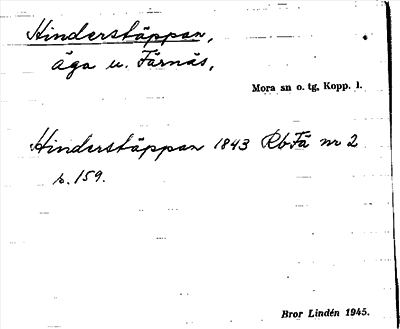 Hinderstäppan,
äga u. Färnäs,
Mora sn o. tg, Kopp. l.
Hinderstäppan 1843 Rb Fä nr 2
s. 159.
Bror Lindén 1945.